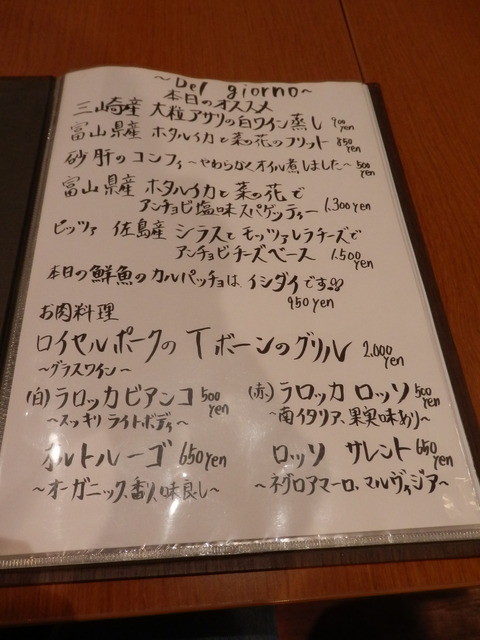 ～Del giorno～
本日のオススメ
三崎産 大粒アサリの白ワイン蒸し 900yen
富山県産 ホタルイカと菜の花のフリット 850yen
砂肝のコンフィ～やわらかくオイル煮しました～ 500yen
富山県産 ホタルイカと菜の花で
アンチョビ塩味スパゲッティー 1,300yen
ピッツァ 佐島産 シラスとモッツァレラチーズで
アンチョビチーズベース 1,500yen
本日の鮮魚のカルパッチョは、イシダイです!!
950yen
お肉料理
ロイヤルポークのTボーンのグリル 2,000yen
～グラスワイン～
(白)ラロッカビアンコ 500yen
～スッキリライトボディ～
オルトルーゴ 650yen
～オーガニック、香り、味良し～
(赤)ラロッカ ロッソ 500yen
～南イタリア、果実味あり～
ロッソ サレント 650yen
～ネグロアマーロ、マルヴァジア～